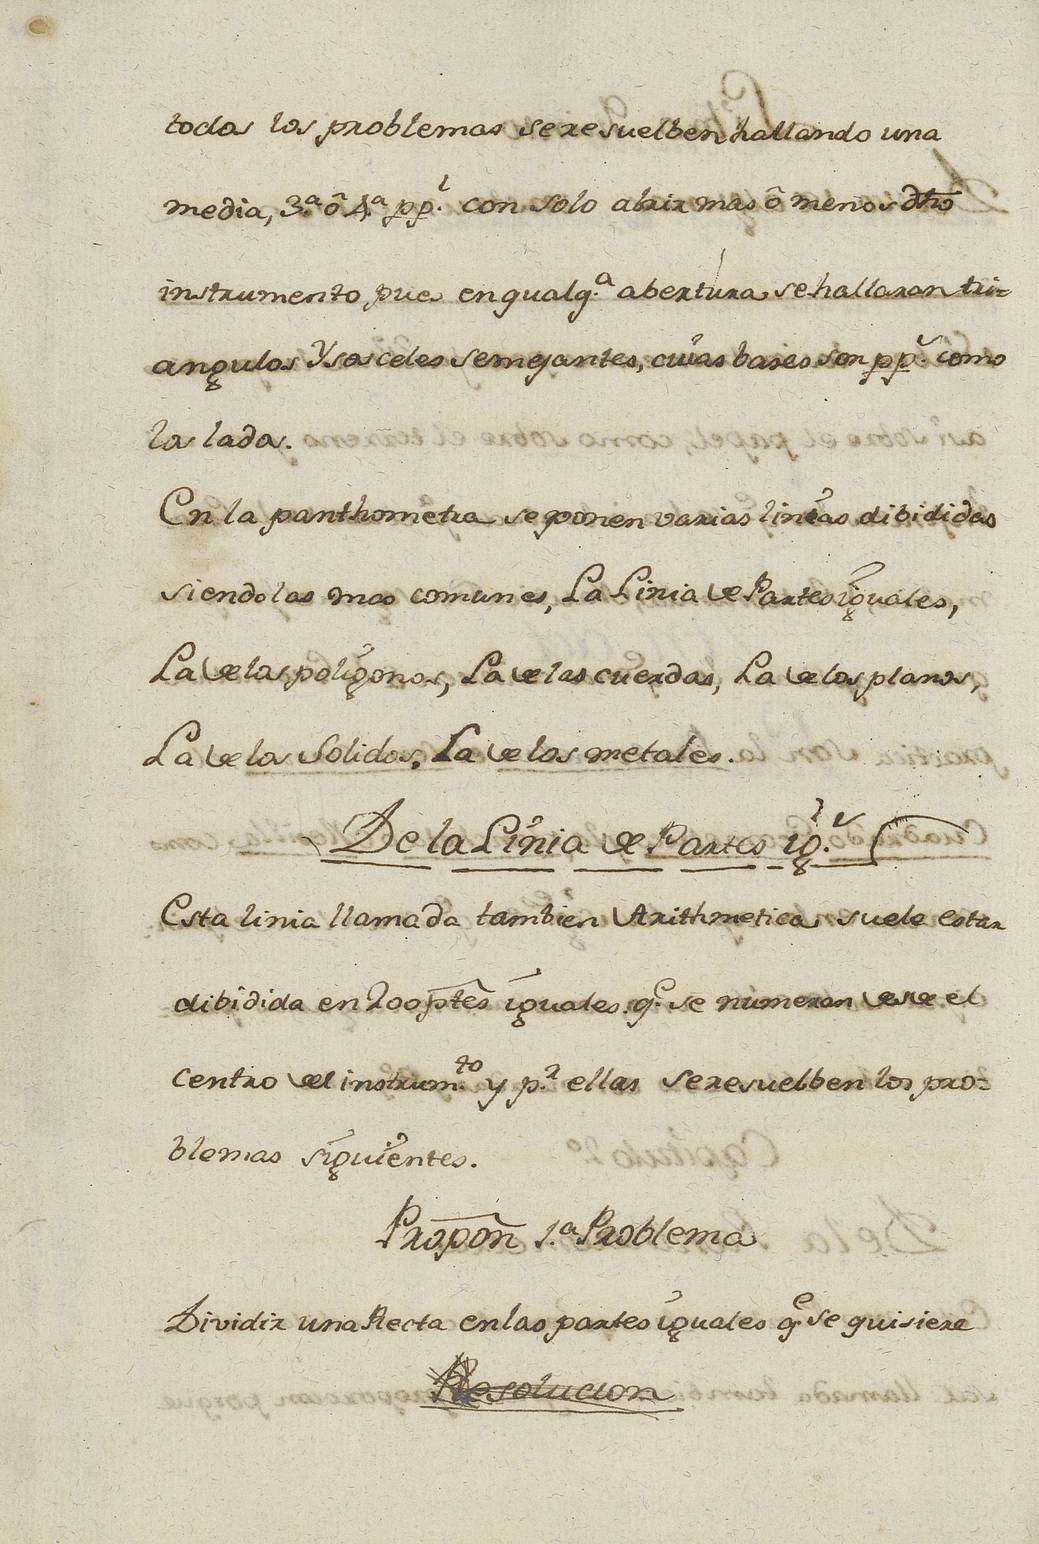 todos los problemas se resuelben hallando una
media, 3.ª ô 4.ª pp.l con solo abrir mas ô menos dho
instrumento, pues en qualq.a abertura se hallaran tri-
angulos Ysosceles semejantes, cuias bases son pp.s como
los lados.
En la panthometra se ponen varias lineas dibididas
siendo las mas comunes, La Linia de Partes iguales,
La de los poligonos, La de las cuerdas, La de los planos,
La de los Solidos, La de los metales.
De la Linia de Partes ig.s
Esta linia llamada tambien Arithmetica suele estar
dibidida en 200 ptes iguales q.e se numeran desde el
centro del instrum.to y p.r ellas se resuelben los pro-
blemas siguientes.
Propon 1.ª Problema
Dividir una Recta en las partes iguales q.e se quisiere
Resolucion